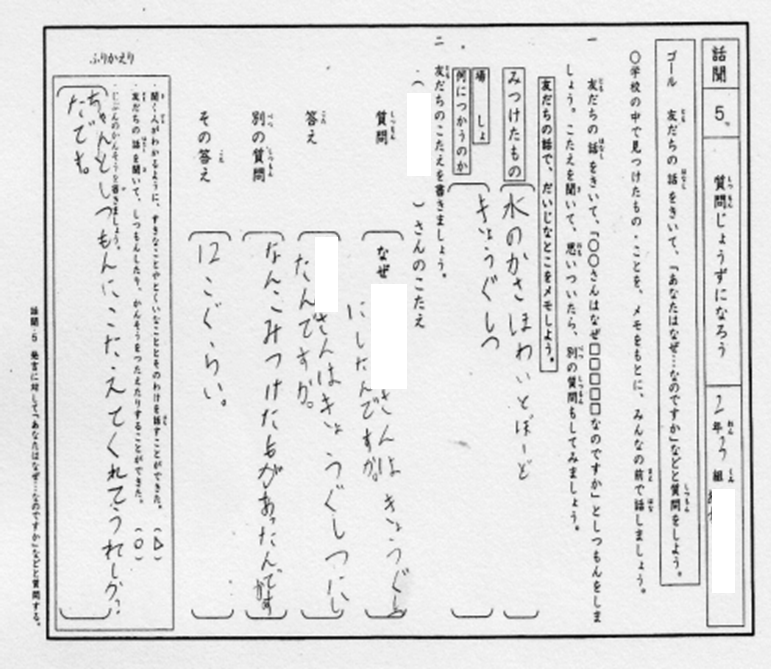 話聞 5 質問じょうずになろう 2年3組
ゴール 友だちの話をきいて、「あなたはなぜ…なのですか」などと質問をしよう。
○学校の中で見つけたもの・ことを、メモをもとに、みんなの前で話しましょう。
一 友だちの話をきいて、「○○さんはなぜ□□□□□なのですか」としつもんをしま
しょう。こたえを聞いて、思いついたら、別の質問もしてみましょう。
友だちの話で、だいじなとこをメモしよう。
みつけたもの 水のかさほわいとぼーど
場しょ きょうぐしつ
何につかうのか
二 友だちのこたえを書きましょう。
・( )さんのこたえ
質問 なぜ さんはきょうぐし
にしたんですか。
答え さんはきょうぐしつにし
たんですか。
別の質問 なんこみつけたものがあったんですか
その答え 12こぐらい。
ふりかえり
・聞く人がわかるように、すきなことやとくいなこととそのわけを話すことができた。(△)
・友だちの話を聞いて、しつもんしたり、かんそうをつたえたりすることができた。(○)
・じぶんのかんそうを書きましょう。
ちゃんとしつもんにこたえてくれてうれしかっ
たです。
話聞・5 発言に対して「あなたはなぜ…なのですか」などと質問する。